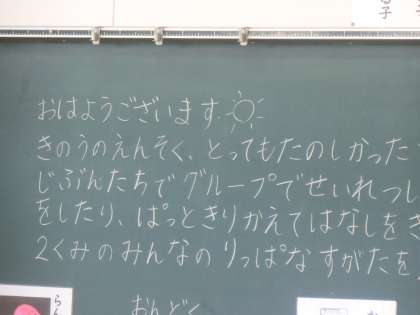 る子
おはようございます
きのうのえんそく、とってもたのしかった
じぶんたちでグループでせいれつし
をしたり、ぱっときりかえてはなしをき
2くみのみんなのりっぱなすがたを
おんどく
らん